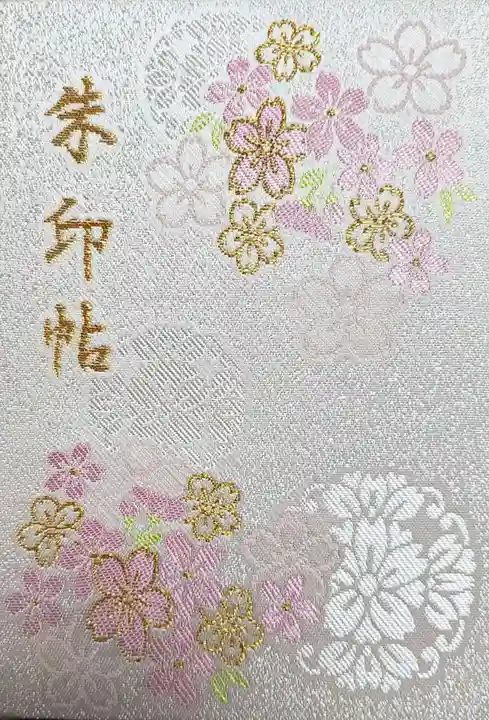 朱印帖